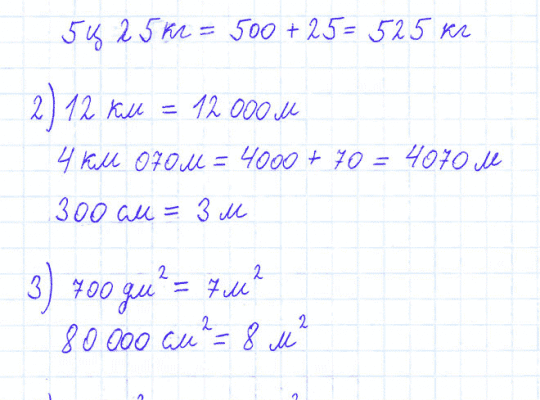 5ц 25кг = 500 + 25 = 525 кг
2) 12 км = 12 000м
4 км 070м = 4000 + 70 = 4070 м
300 см = 3 м
3) 700 дм² = 7м²
80 000 см² = 8 м²